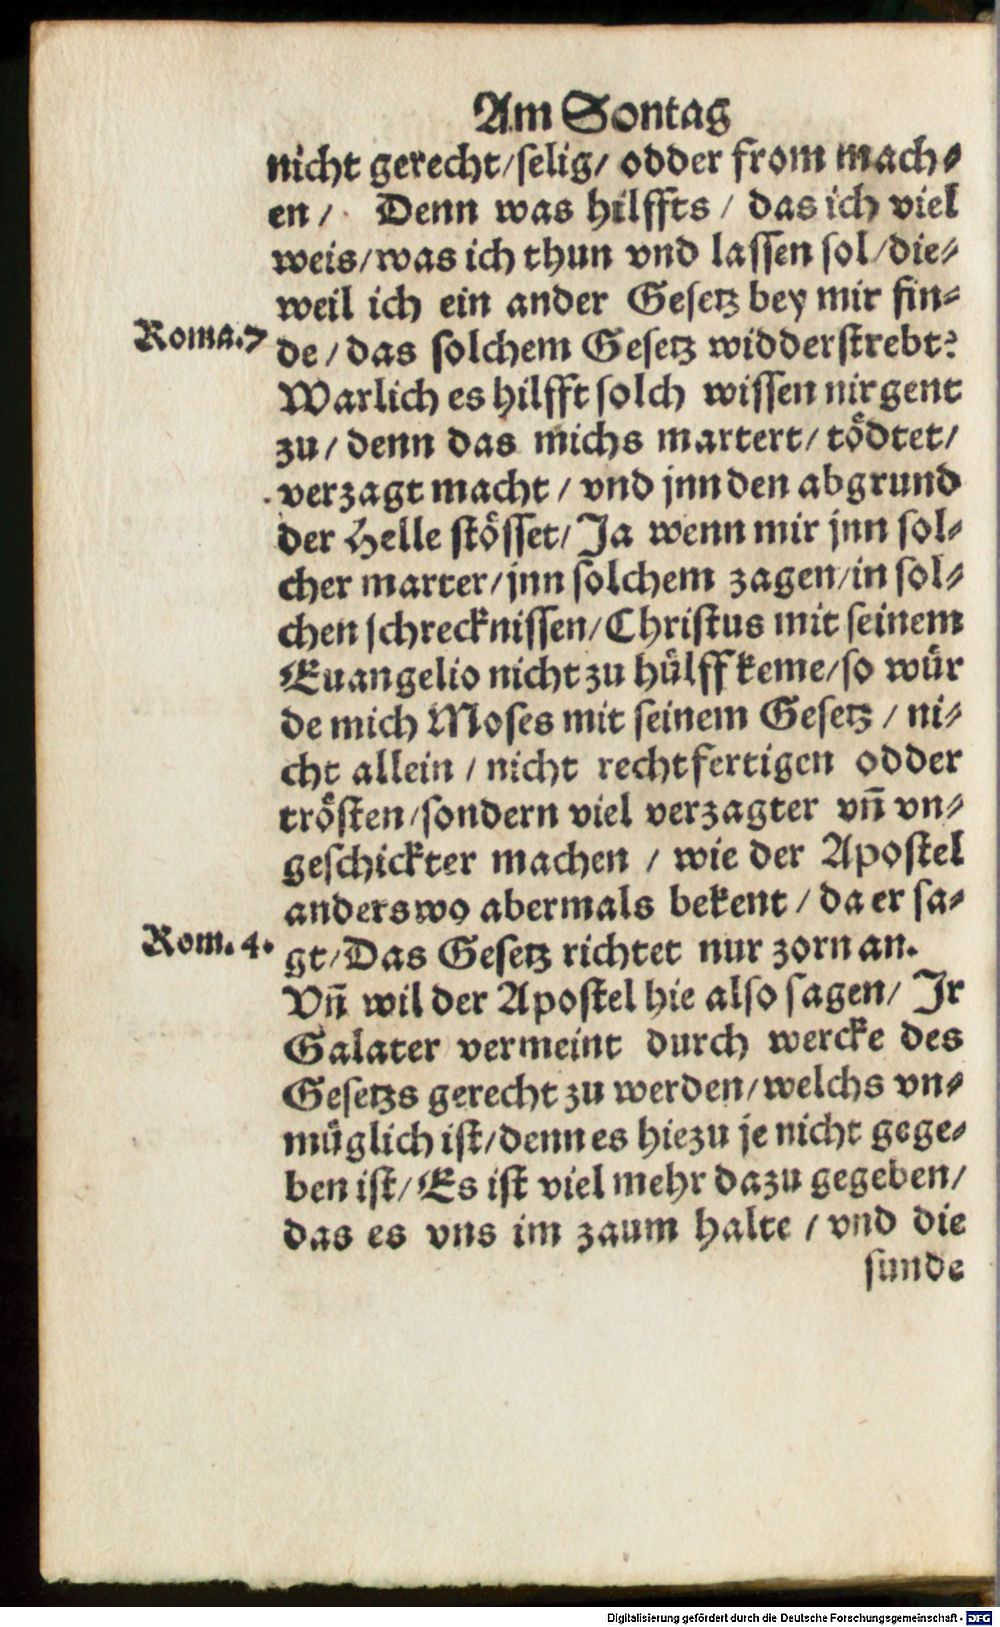 Am Sontag
nicht gerecht/selig/ odder from mach⸗
en/ Denn was hilffts / das ich viel
weis/was ich thun vnd lassen sol/die⸗
weil ich ein ander Gesetz bey mir fin⸗
Roma.7
de/das solchem Gesetz widderstrebt?
Warlich es hilfft solch wissen nirgent
zu/ denn das michs martert/ tödtet/
verzagt macht / vnd jnn den abgrund
der Helle stösset/ Ja wenn mir jnn sol⸗
cher marter/jnn solchem zagen/in sol⸗
chen schrecknissen/Christus mit seinem
Euangelio nicht zu hülff keme/so wür
de mich Moses mit seinem Gesetz / ni⸗
cht allein / nicht rechtfertigen odder
trösten/sondern viel verzagter vñ vn⸗
geschickter machen / wie der Apostel
anderswo abermals bekent / da er sa⸗
Rom.4.
gt/Das Gesetz richtet nur zorn an.
Vñ wil der Apostel hie also sagen/ Jr
Galater vermeint durch wercke des
Gesetzs gerecht zu werden/welchs vn⸗
müglich ist/denn es hiezu je nicht gege⸗
ben ist/Es ist viel mehr dazu gegeben/
das es vns im zaum halte / vnd die
sunde
Digitalisierung gefördert durch die Deutsche Forschungsgemeinschaft - DFG